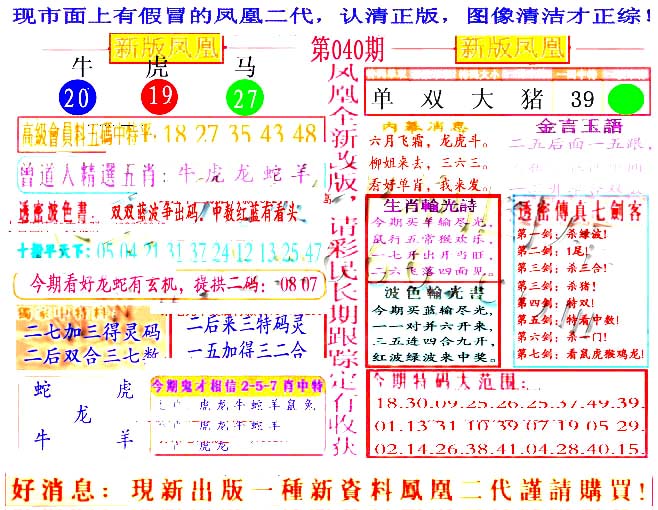 现市面上有假冒的凤凰二代，认清正版，图像清洁才正综！
新版凤凰
第040期
新版凤凰
牛 虎 马
20 19 27
高級會員料五碼中特平：18 27 35 43 48
曾道人精選五肖：牛虎龙蛇羊
透密波色書：双双蓝波争出码！中数红蓝有看头
十指平天下：05 04 21 31 37 24 12 13 25 47
今期看好龙蛇有玄机，提拱二码：08 07
二七加三得灵码
二后双合三七数
二后来三特码灵
一五加得三二合
蛇 虎
龙
牛 羊
今期鬼才相信2-5-7肖中特
虎龙牛蛇羊鼠兔
虎龙牛蛇羊
虎龙
凤凰全新改版，请彩民长期跟踪定有收获
单 双 大 猪 39
内幕消息
六月飞霜，龙虎斗。
柳姐来去，三六三。
看好单肖，我来发。
金言玉語
二五后面一五跟，
生肖輸光詩
今期买羊输尽光，
鼠行五常猴欢乐，
一七开出月当旺，
二六飞落四面见。
波色輸光書
今期买蓝输尽光，
一一对并六开来，
三五连四合九开，
红波绿波来中奖。
透密傳真七劍客
第一剑：杀绿波！
第二剑：1尾！
第三剑：杀三合！
第三剑：杀猪！
第四剑：特双！
第五剑：特看中数！
第六剑：杀一门！
第七剑：看鼠虎猴鸡龙！
今期特码大范围：
18.30.09.25.26.25.37.49.39.
01.13.31.10.39.07.19.05.29.
02.14.26.38.41.04.28.40.15.
好消息：現新出版一種新資料鳳凰二代謹請購買！